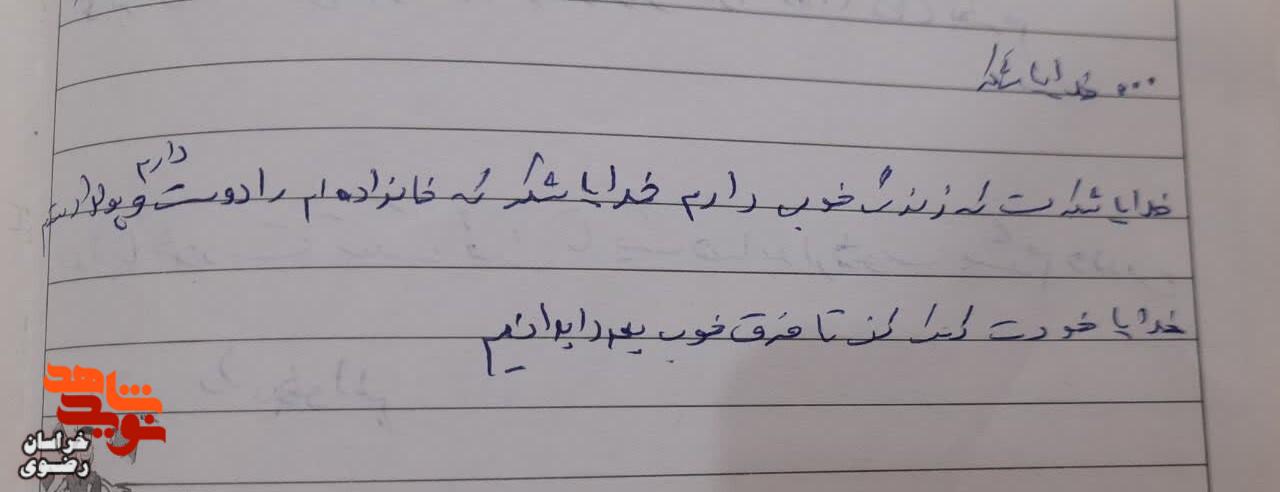 ... خدایا شکر
خدایا شکرت که زندگی خوب دارم خدایا شکر که خانواده ام را دوست دارم و
خدایا خودت کمک کن تا فرق خوب بد را بدانیم
نوید شاهد
خراسان رضوی